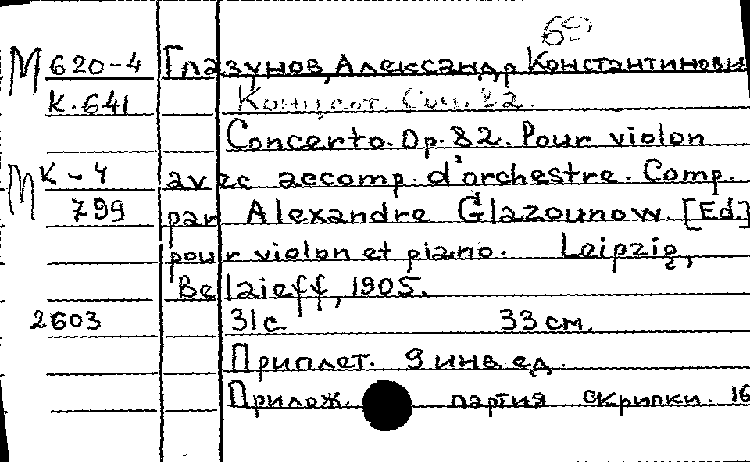 69
М 620-4 Глазунов, Александр Константинович
К.641 Концерт. Соч. 82.
Concerto. Op. 82. Pour violon
М К-4 avec accomp. d'orchestre. Comp.
799 par Alexandre Glazounow. [Ed.]
pour violon et piano. Leipzig,
Belaieff, 1905.
2603 31с 33 см.
Приплет. 9 инв. ед.
Прилож. партия скрипки. 16